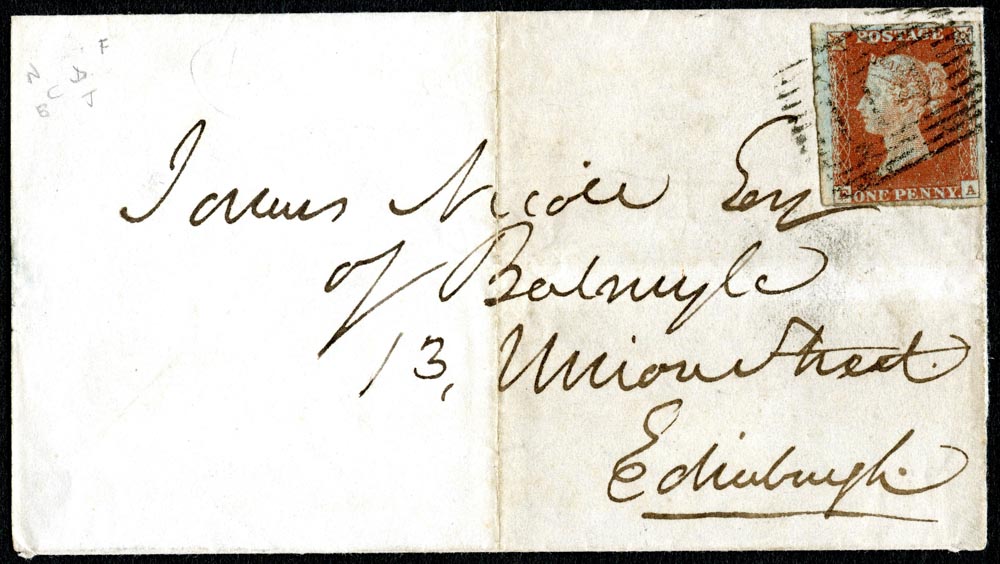 F
N D
C
B J
POSTAGE
ONE PENNY A
James Nicoll Esq
of Balmyle
13, Union Street.
Edinburgh.